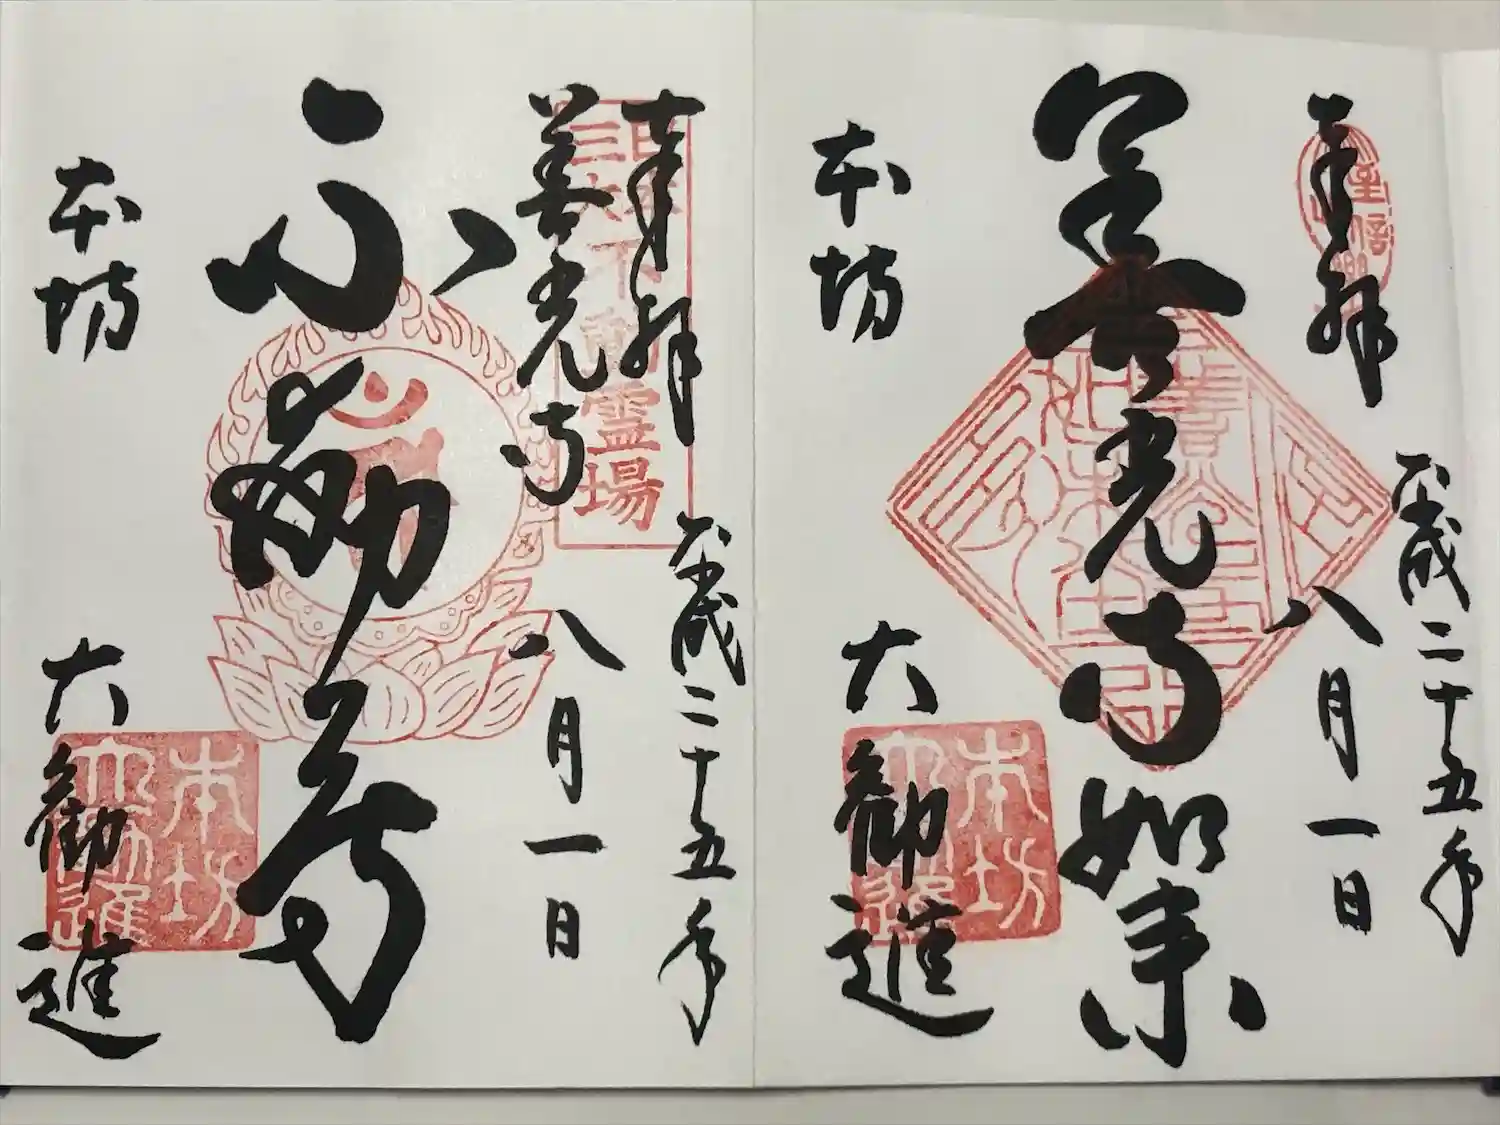 奉拝
平成二十五年
八月一日
善光寺如来
本坊
大勧進
本坊
大勧進
奉拝
善光寺
平成二十五年
八月一日
日本
三大
不動霊場
不動尊
本坊
大勧進
本坊
大勧進